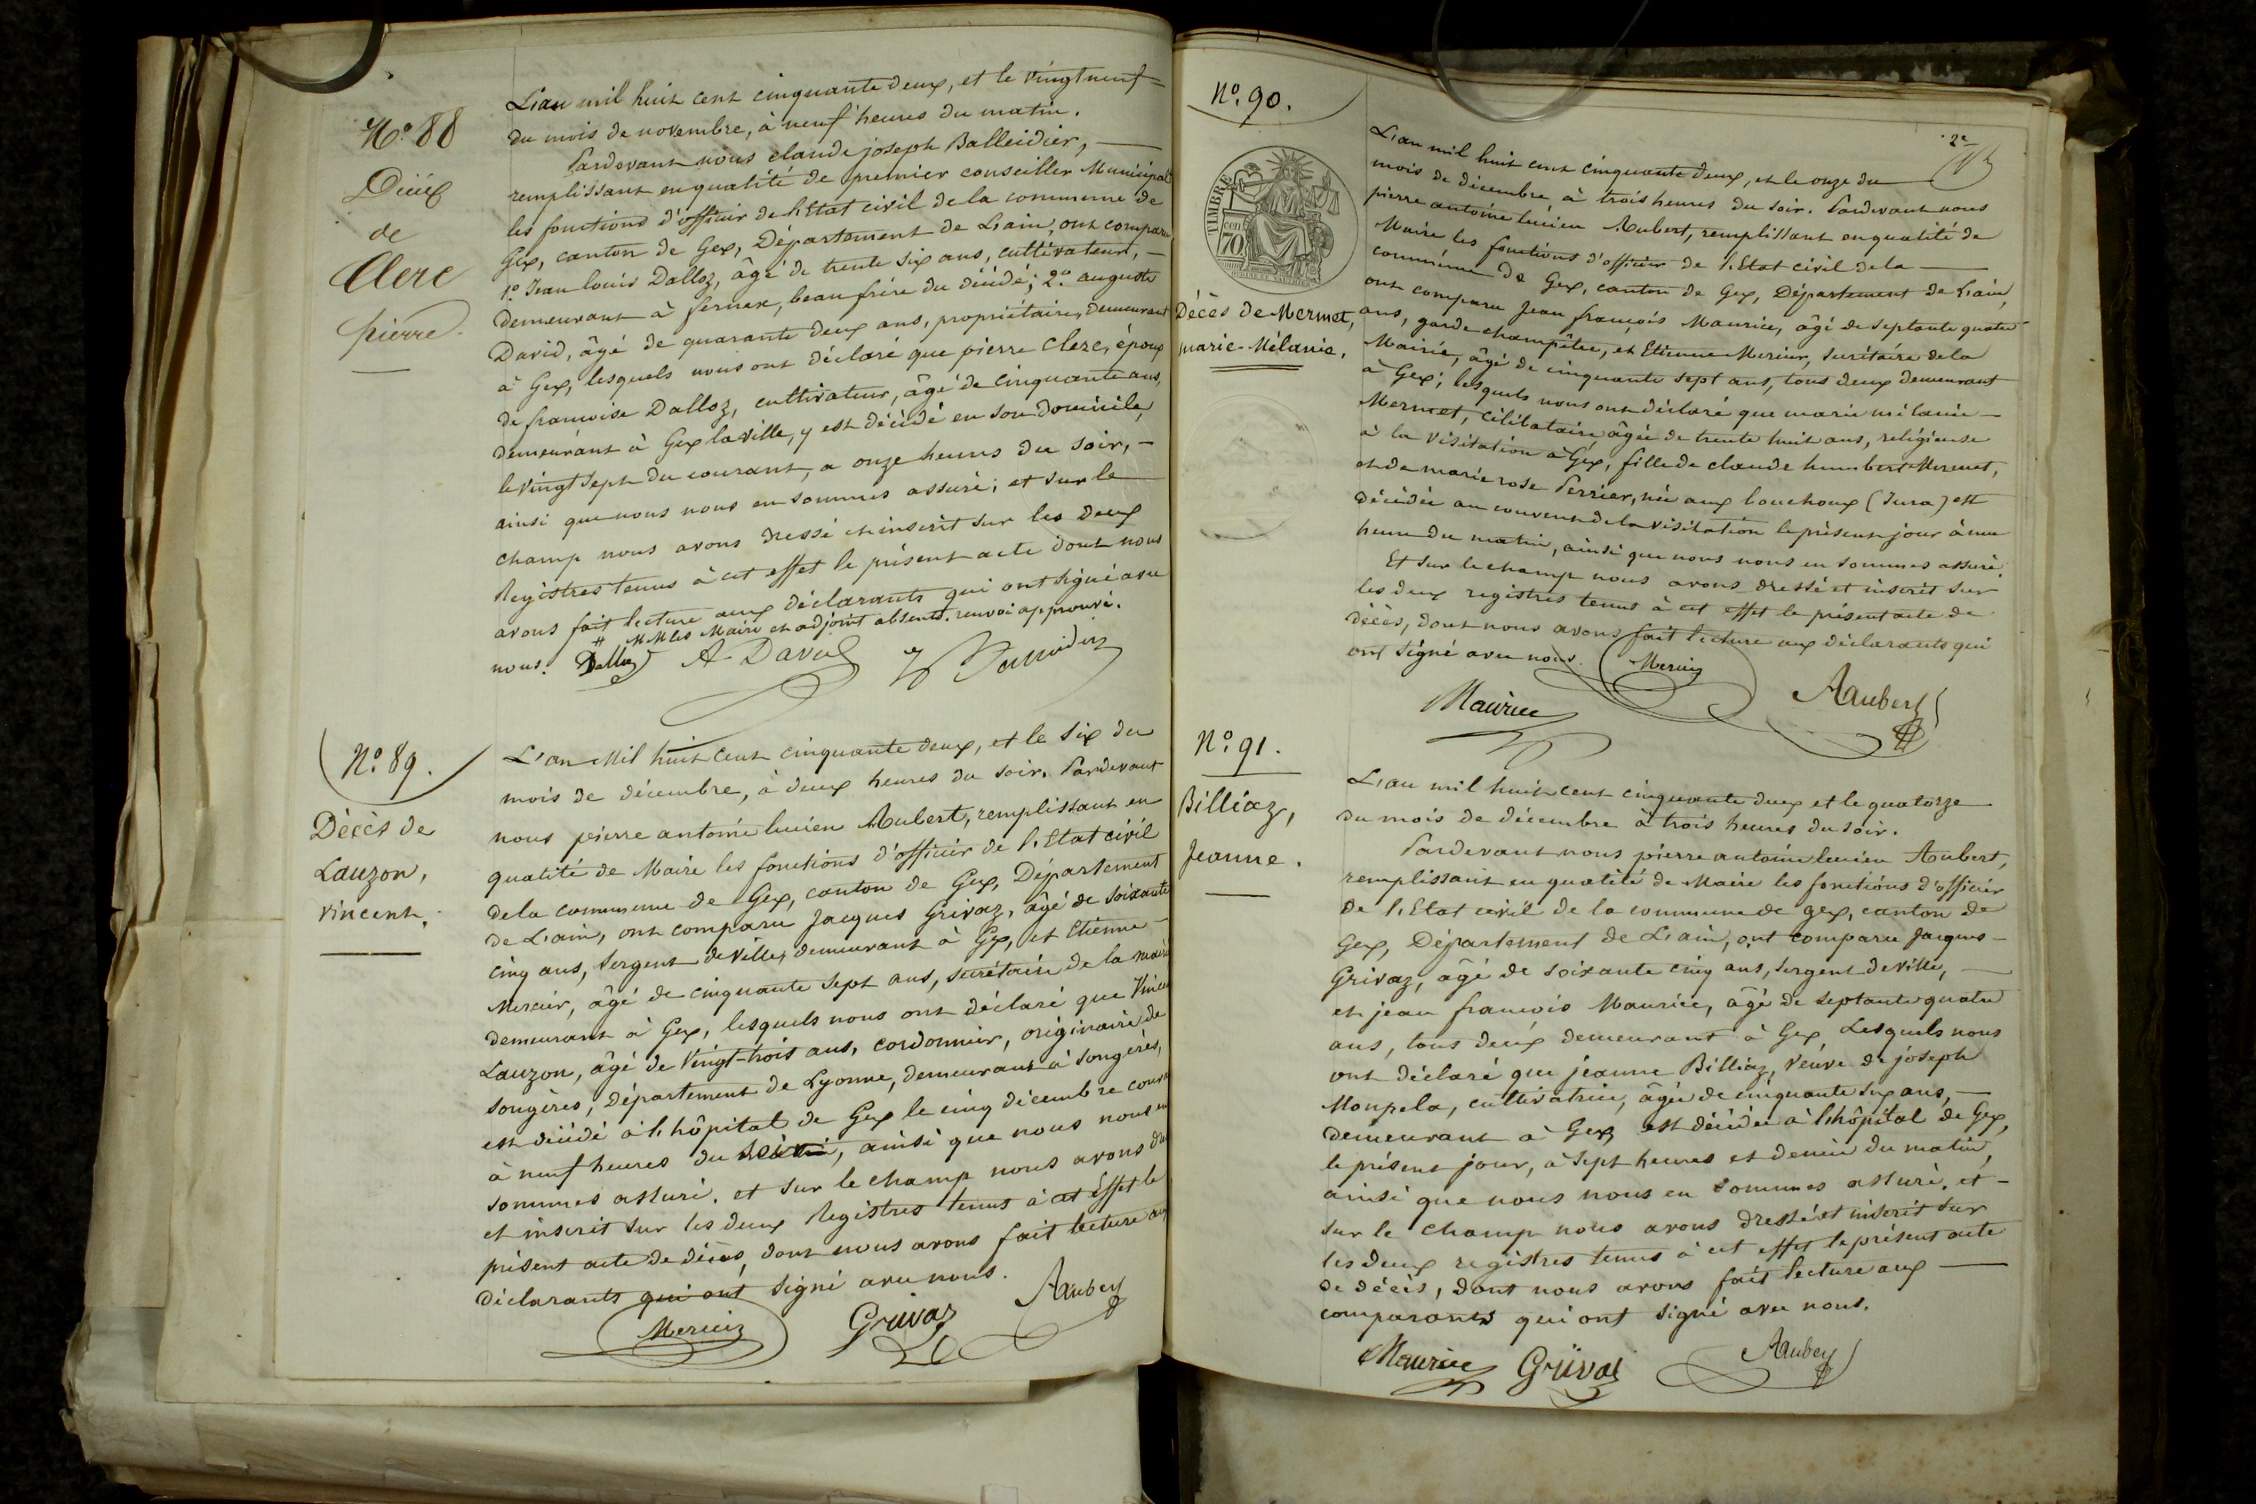 N.º 88
Décès
de
Clerc
pierre
L'an mil huit cent cinquante deux, et le vingt neuf
du mois de novembre, à neuf heures du matin.
Pardevant nous claude joseph Balleidier,
remplissant en qualité de premier conseiller Municipal
les fonctions d'officier de l'Etat civil de la commune de
Gex, canton de Gex, Département de L'ain, ont comparu
1.º Jean louis Dalloz, âgé de trente six ans, cultivateur,
demeurant à fernex, beau frère du décédé; 2.º auguste
David, âgé de quarante deux ans, propriétaire, demeurant
à Gex, lesquels nous ont déclaré que pierre Clerc, époux
de françoise Dalloz, cultivateur, âgé de cinquante ans,
demeurant à Gex la ville, y est décédé en son domicile,
le vingt sept du courant, a onze heures du soir,
ainsi que nous nous en sommes assuré; et sur le
champ nous avons dressé et inscrit sur les deux
Registres tenus à cet effet le présent acte dont nous
avons fait lecture aux déclarants qui ont signé avec
# MM les Maire et adjoint absents. renvoi approuvé.
nous. Dalloz A David
N.º 89.
Décès de
Lauzon,
vincent.
L'an Mil huit Cent cinquante deux, et le six du
mois de décembre, à deux heures du soir. Pardevant
nous pierre antoine lucien Aubert, remplissant en
qualité de Maire les fonctions d'officier de l'Etat civil
de la commune de Gex, canton de Gex, Département
de L'ain, ont comparu Jacques Grivaz, âgé de soixante
cinq ans, sergent de ville, demeurant à Gex, et Etienne
Mercier, âgé de cinquante sept ans, secrétaire de la mairie
demeurant à Gex, lesquels nous ont déclaré que Vincent
Lauzon, âgé de vingt-trois ans, cordonnier, originaire de
songères, Département de Lyonne, demeurant à songères,
est décédé à l'hôpital de Gex le cinq décembre courant
à neuf heures du soir, ainsi que nous nous en
sommes assuré. et sur le champ nous avons
et inscrit sur les deux Registres tenus à cet effet le
présent acte de décès, dont nous avons fait lecture aux
déclarants qui ont signé avec nous.
Mercier Grivaz AAubert
N.º 90.
TIMBRE
cen
70
Décès de Mermet,
marie-Mélanie.
2e
L'an mil huit cent cinquante deux, et le onze du
mois de décembre, à trois heures du soir. Pardevant nous
pierre antoine lucien Aubert, remplissant en qualité de
Maire les fonctions d'officier de l'Etat civil de la
commune de Gex, canton de Gex, Département de L'ain,
ont comparu Jean françois Maurice, âgé de septante quatre
ans, garde champêtre, et Etienne Mercier, secrétaire de la
Mairie, âgé de cinquante sept ans, tous deux demeurant
à Gex; lesquels nous ont déclaré que marie mélanie
Mermet, célibataire, âgée de trente huit ans, religieuse
à la visitation à Gex, fille de claude humbert Mermet,
et de marie rose Perrier, née aux bouchoux (Jura) est
décédée au couvent de la visitation le présent jour à une
heure du matin, ainsi que nous nous en sommes assuré.
Et sur le champ nous avons dressé et inscrit sur
les deux registres tenus à cet effet le présent acte de
décès, dont nous avons fait lecture aux déclarants qui
ont signé avec nous. Mercier
Maurice AAubert
N.º 91.
Billiaz,
Jeanne.
L'an mil huit cent cinquante deux et le quatorze
du mois de décembre à trois heures du soir.
Pardevant nous pierre antoine lucien Aubert,
remplissant en qualité de Maire les fonctions d'officier
de l'Etat civil de la commune de gex, canton de
Gex, Département de L'ain, ont comparu Jacques
Grivaz, âgé de soixante cinq ans, sergent de ville,
et jean françois Maurice, âgé de septante quatre
ans, tous deux demeurant à Gex Lesquels nous
ont déclaré que jeanne Billiaz, veuve de joseph
Monpela, cultivatrice, âgée de cinquante six ans,
demeurant à Gex est décédée à l'hôpital de Gex,
le présent jour, à sept heures et demie du matin,
ainsi que nous nous en sommes assuré. et
sur le champ nous avons dressé et inscrit sur
les deux registres tenus à cet effet le présent acte
de décès, dont nous avons fait lecture aux
comparants qui ont signé avec nous.
Maurice Grivaz AAubert